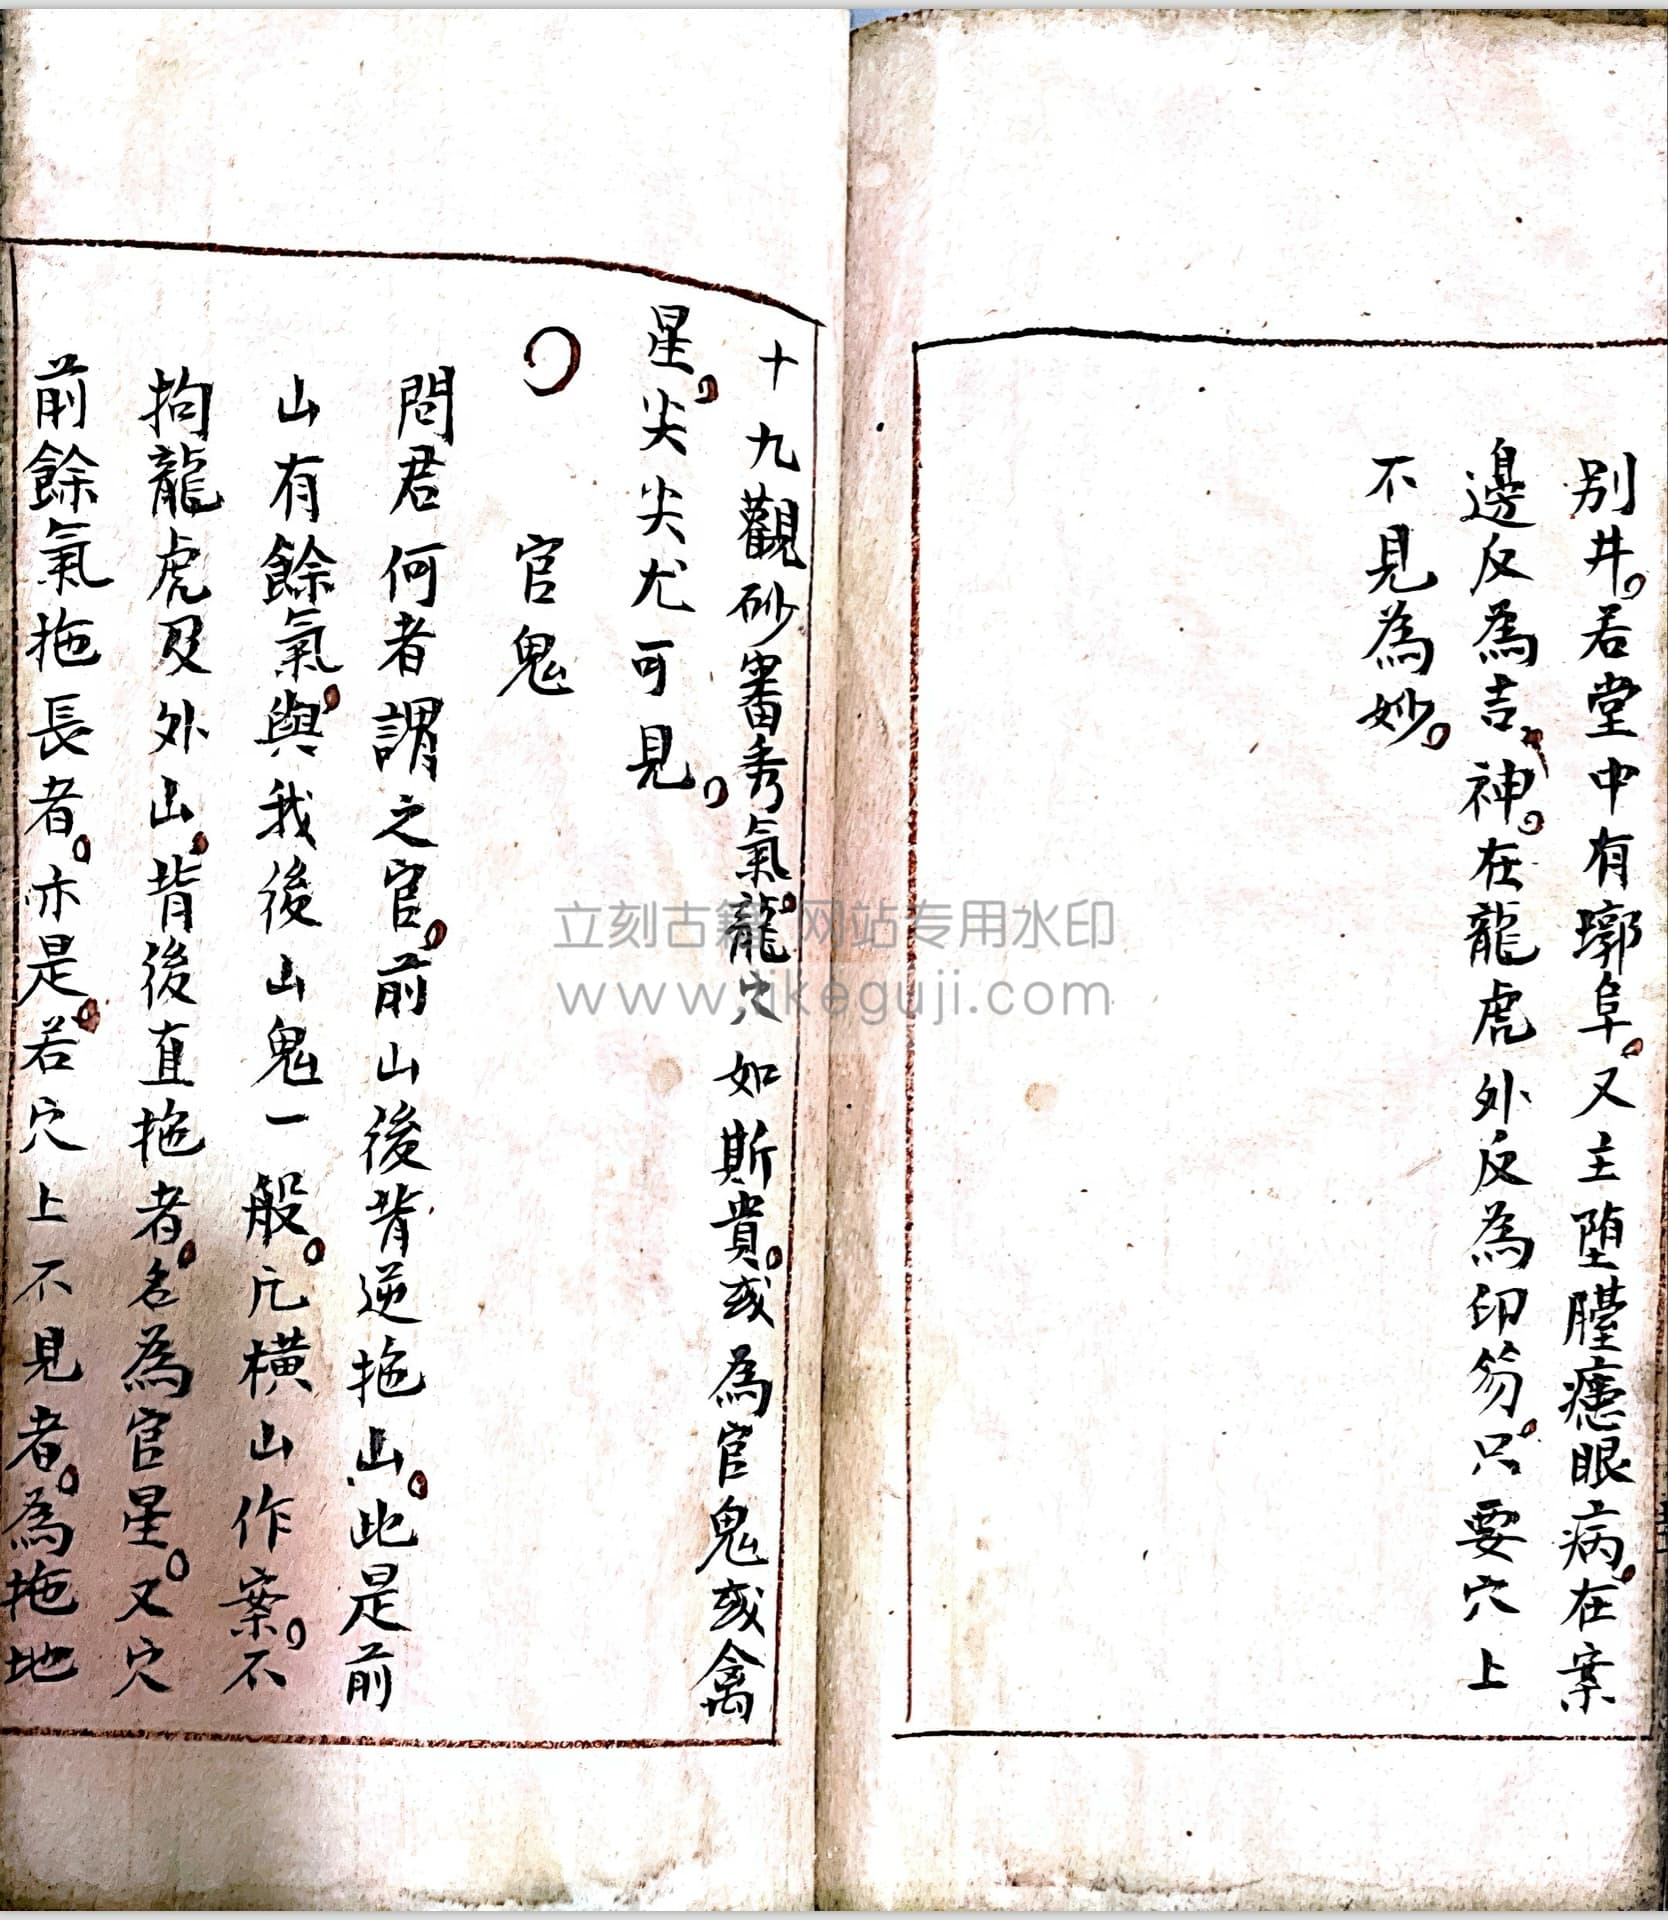 別井。若堂中有墩阜。又主堕膛瘜眼病。在案
邊反為吉。神。在龍虎外反為印笏。只要穴上
不見為妙。
十九觀砂審秀氣。龍穴如斯貴。或為官鬼或禽
星。尖尖尤可見。
○官鬼
問君何者謂之官。前山後背逆拖山。此是前
山有餘氣。與我後山鬼一般。凢橫山作案。不
拘龍虎及外山。背後直拖者。名為官星。又穴
前餘氣拖長者。亦是。若穴上不見者。為拖地
立刻古籍 网站专用水印
www.likeguji.com